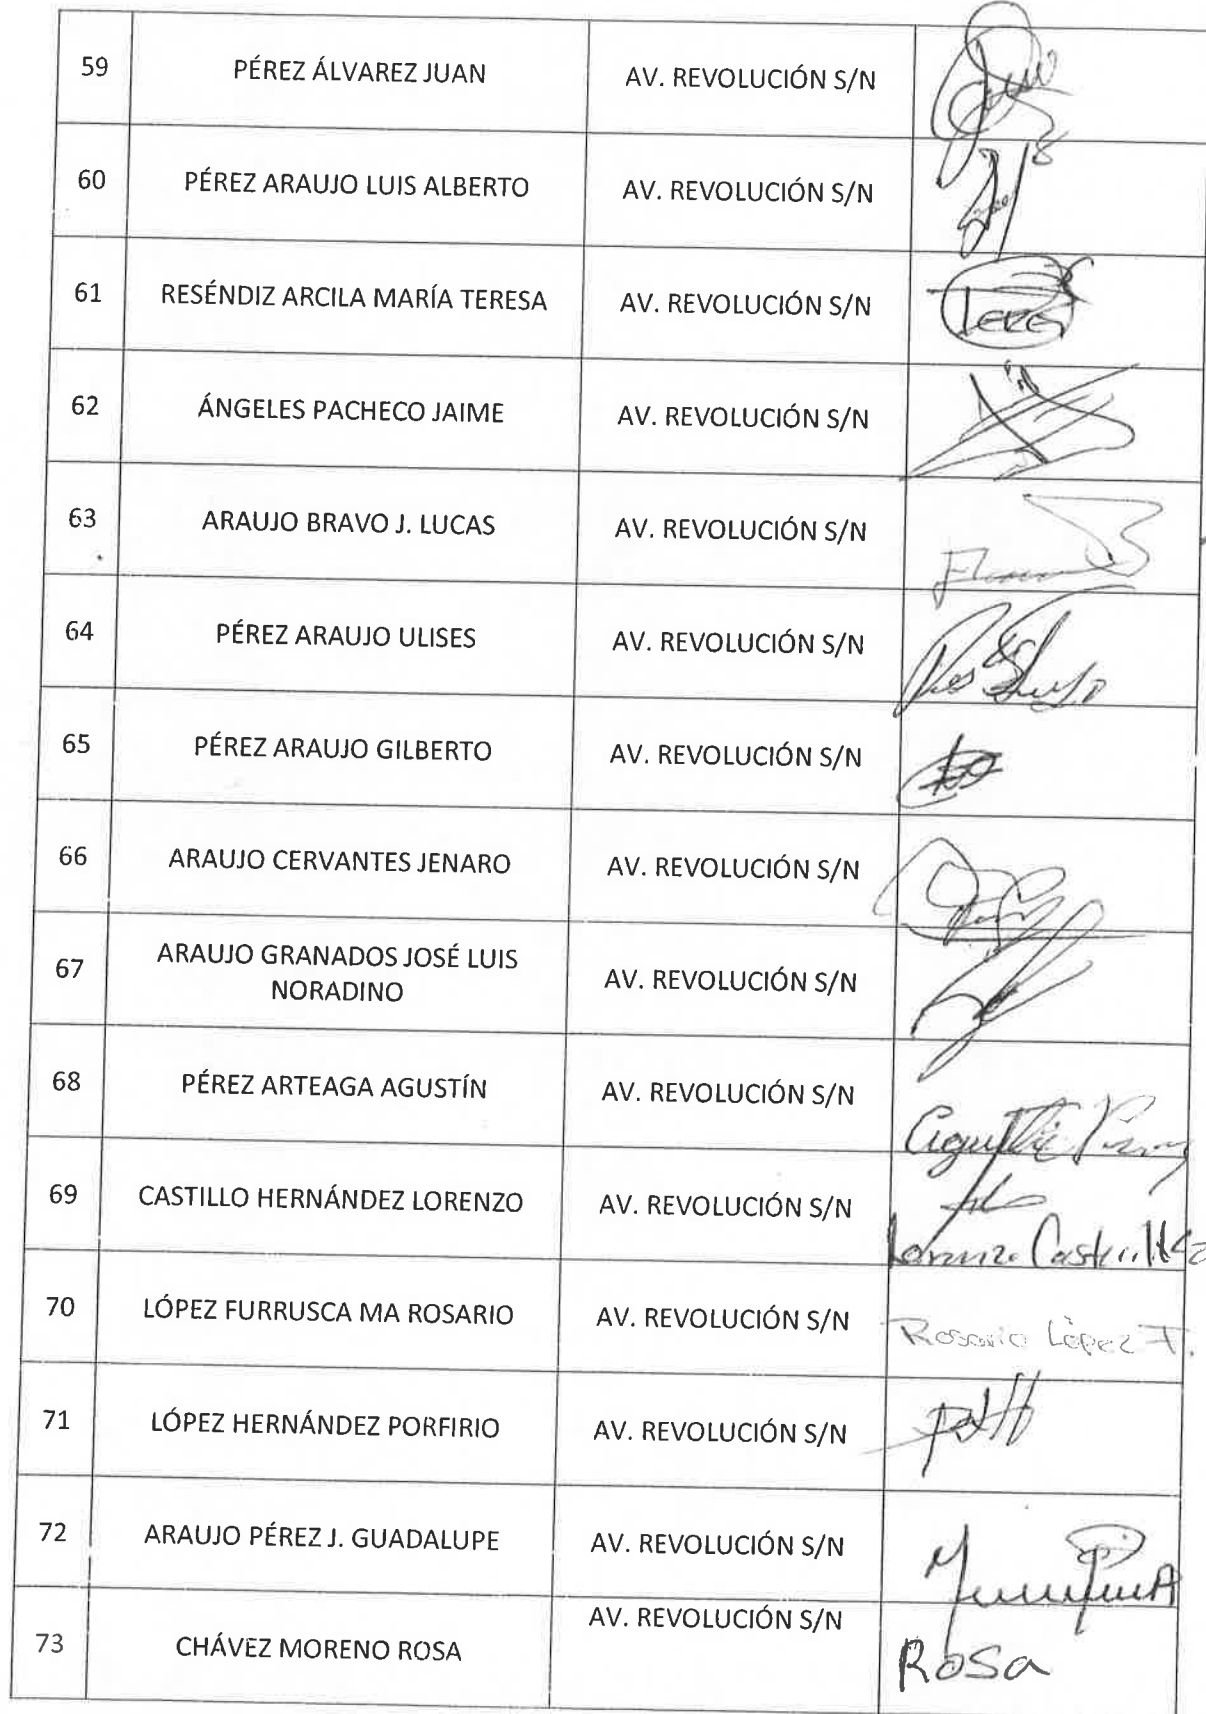 59 PÉREZ ÁLVAREZ JUAN AV. REVOLUCIÓN S/N
60 PÉREZ ARAUJO LUIS ALBERTO AV. REVOLUCIÓN S/N
61 RESÉNDIZ ARCILA MARÍA TERESA AV. REVOLUCIÓN S/N Tere
62 ÁNGELES PACHECO JAIME AV. REVOLUCIÓN S/N
63 ARAUJO BRAVO J. LUCAS AV. REVOLUCIÓN S/N
64 PÉREZ ARAUJO ULISES AV. REVOLUCIÓN S/N
65 PÉREZ ARAUJO GILBERTO AV. REVOLUCIÓN S/N
66 ARAUJO CERVANTES JENARO AV. REVOLUCIÓN S/N
67 ARAUJO GRANADOS JOSÉ LUIS
NORADINO AV. REVOLUCIÓN S/N
68 PÉREZ ARTEAGA AGUSTÍN AV. REVOLUCIÓN S/N
69 CASTILLO HERNÁNDEZ LORENZO AV. REVOLUCIÓN S/N
70 LÓPEZ FURRUSCA MA ROSARIO AV. REVOLUCIÓN S/N Rosario López F.
71 LÓPEZ HERNÁNDEZ PORFIRIO AV. REVOLUCIÓN S/N
72 ARAUJO PÉREZ J. GUADALUPE AV. REVOLUCIÓN S/N
73 CHÁVEZ MORENO ROSA AV. REVOLUCIÓN S/N Rosa